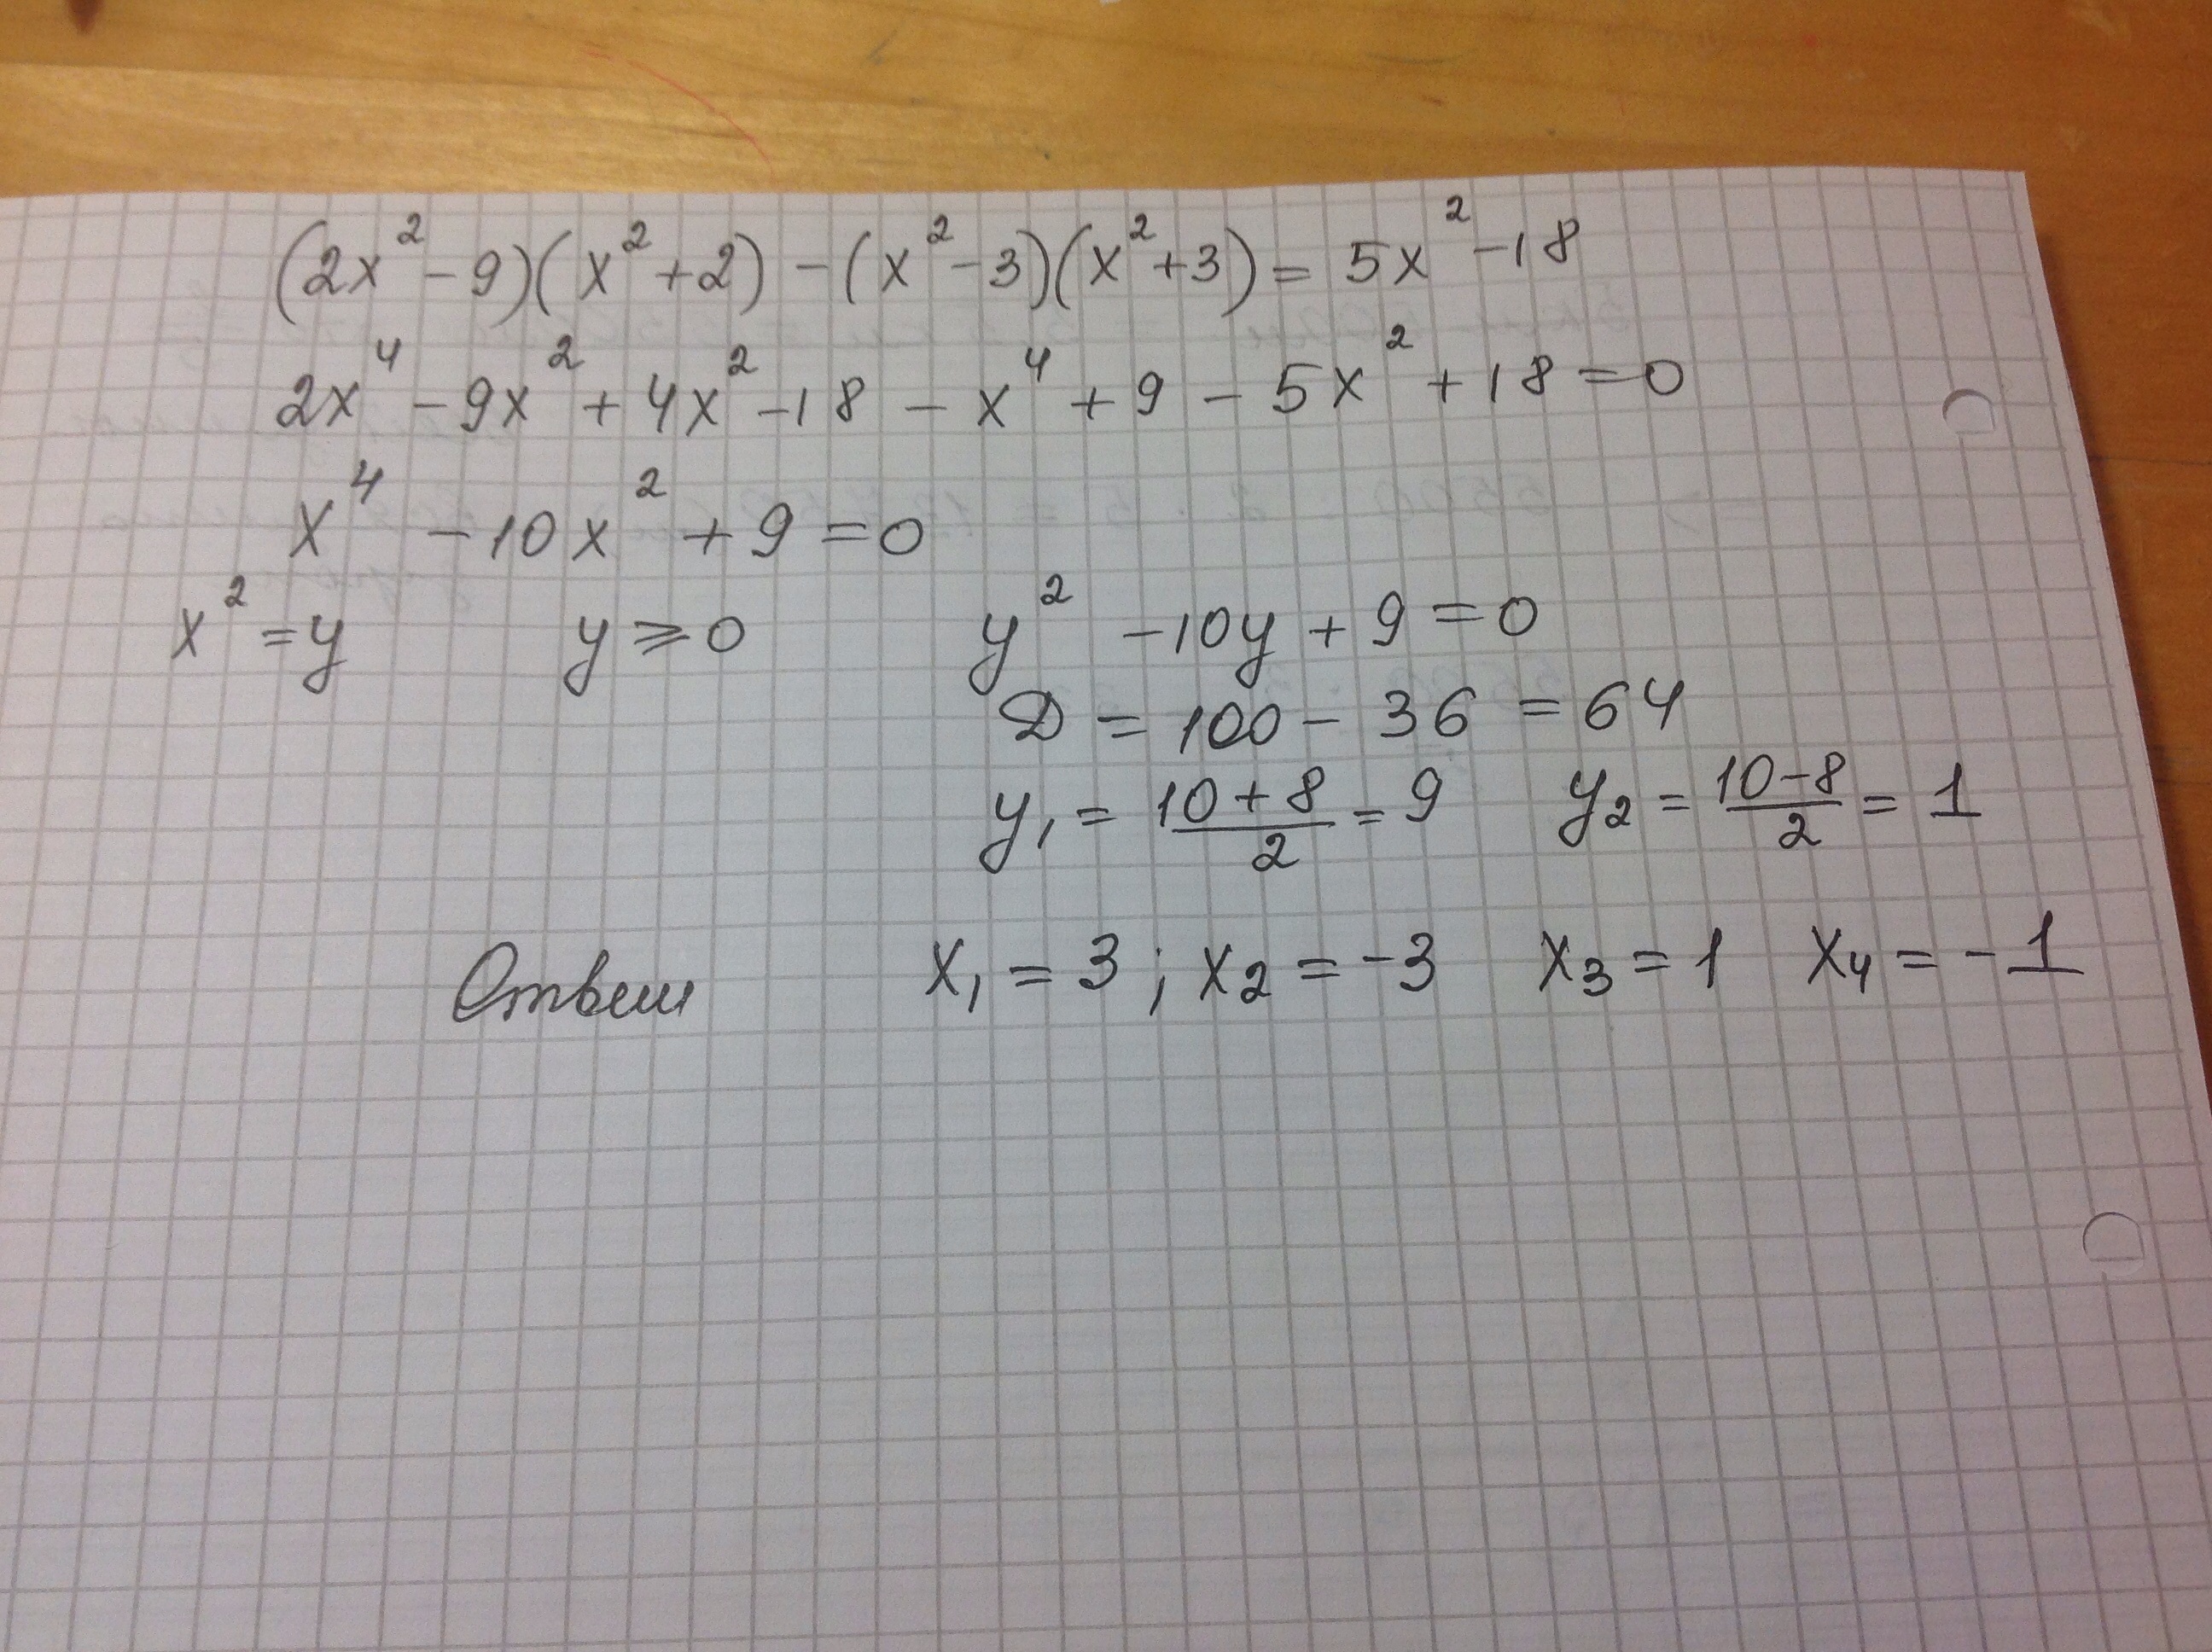 (2x² - 9)(x² + 2) - (x² - 3)(x² + 3) = 5x² - 18
2x⁴ - 9x² + 4x² - 18 - x⁴ + 9 - 5x² + 18 = 0
x⁴ - 10x² + 9 = 0
x² = y y ⩾ 0 y² - 10y + 9 = 0
D = 100 - 36 = 64
y₁ = (10 + 8)/2 = 9 y₂ = (10 - 8)/2 = 1
Ответ x₁ = 3 ; x₂ = -3 x₃ = 1 x₄ = -1